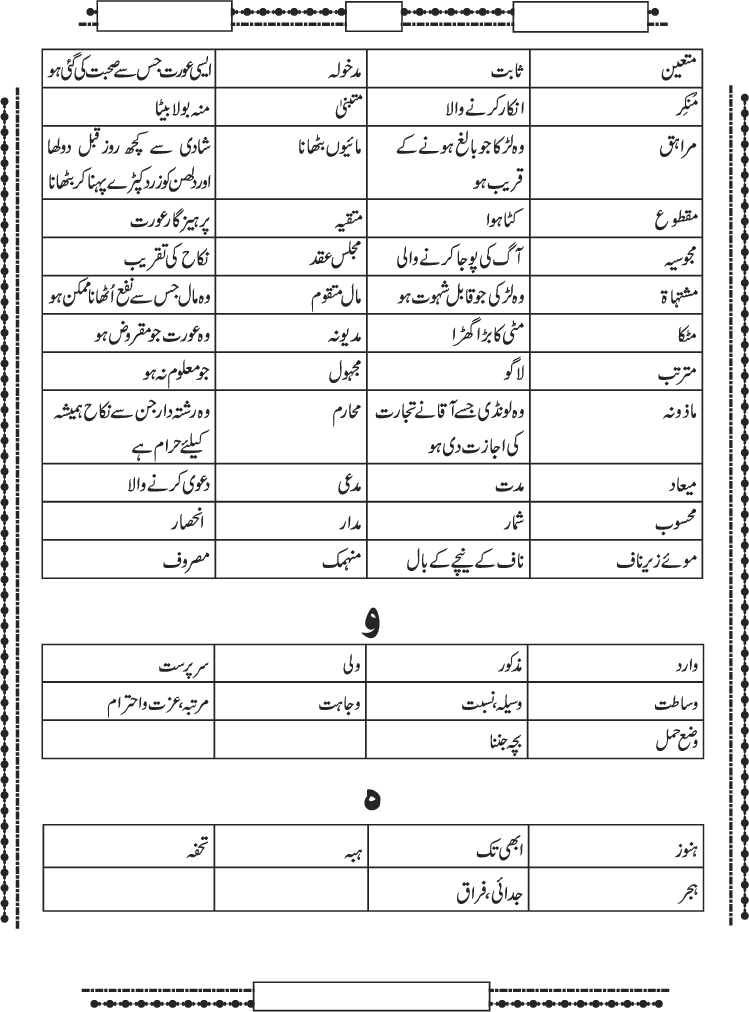 متعین ثابت مدخولہ ایسی عورت جس سے صحبت کی گئی ہو
مُنکِر انکار کرنے والا متبنیٰ منہ بولا بیٹا
مراہق وہ لڑکا جو بالغ ہونے کے مائیوں بٹھانا شادی سے کچھ روز قبل دولھا
قریب ہو اور دلھن کو زرد کپڑے پہنا کر بٹھانا
مقطوع کٹا ہوا متقیہ پرہیز گار عورت
مجوسیہ آگ کی پوجا کرنے والی مجلس عقد نکاح کی تقریب
مشتہاۃ وہ لڑکی جو قابل شہوت ہو مال متقوم وہ مال جس سے نفع اُٹھانا ممکن ہو
مٹکا مٹی کا بڑا گھڑا مدیونہ وہ عورت جو مقروض ہو
مترتب لاگو مجہول جو معلوم نہ ہو
ماذونہ وہ لونڈی جسے آقا نے تجارت محارم وہ رشتہ دار جن سے نکاح ہمیشہ
کی اجازت دی ہو کیلئے حرام ہے
میعاد مدت مدعی دعوی کرنے والا
محسوب شمار مدار انحصار
موئے زیر ناف ناف کے نیچے کے بال منہمک مصروف
و
وارد مذکور ولی سرپرست
وساطت وسیلہ،نسبت وجاہت مرتبہ،عزت واحترام
وضع حمل بچہ جننا
ہ
ہنوز ابھی تک ہبہ تحفہ
ہجر جدائی،فراق